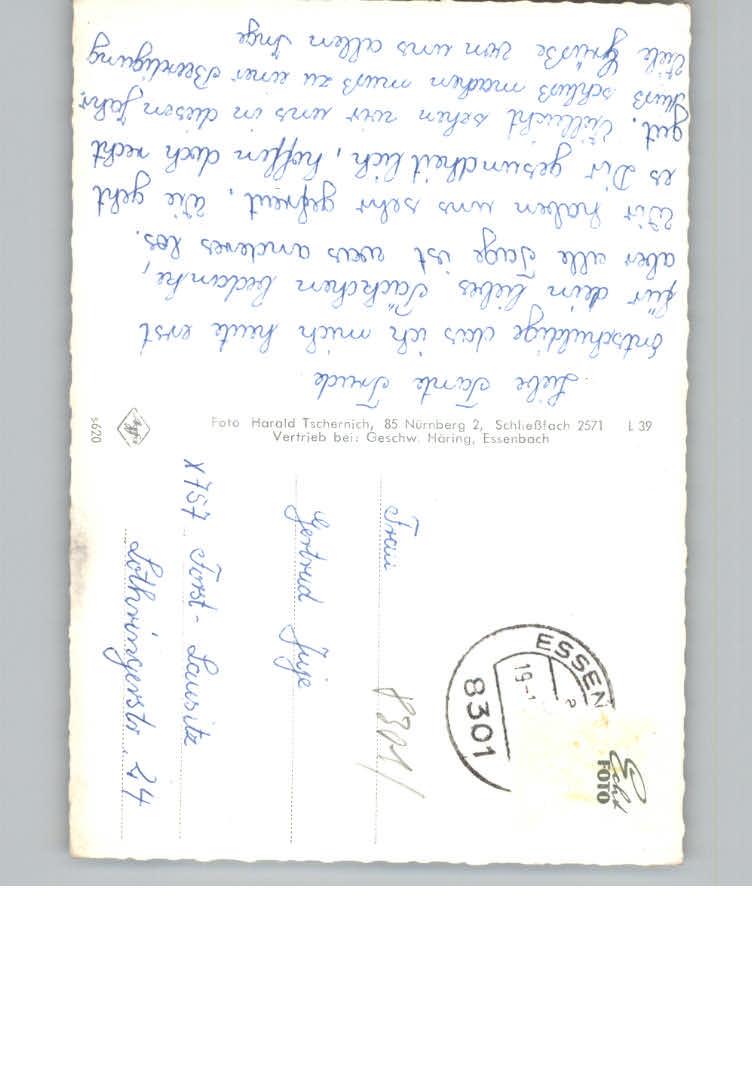 Liebe Tante Trude
Entschuldige das ich mich heute erst
für dein liebes Päckchen bedanke,
aber alle Tage ist was anderes los.
Wir haben uns sehr gefreut. Wie geht
es Dir gesundheitlich, hoffen doch recht
gut. Vielleicht sehen wir uns in diesen Jahr.
Muß schluß machen muß zu einer Beerdigung
Viele Grüße von uns allen Inge
Foto Harald Tschernich, 85 Nürnberg 2, Schließfach 2571 L 39
Vertrieb bei: Geschw. Häring, Essenbach
s620
Agfa
Frau
Gertrud
X757 Forst-Lausitz
Lothringerstr. 24
8301
8301
ESSEN
19-1
a
Echt
FOTO